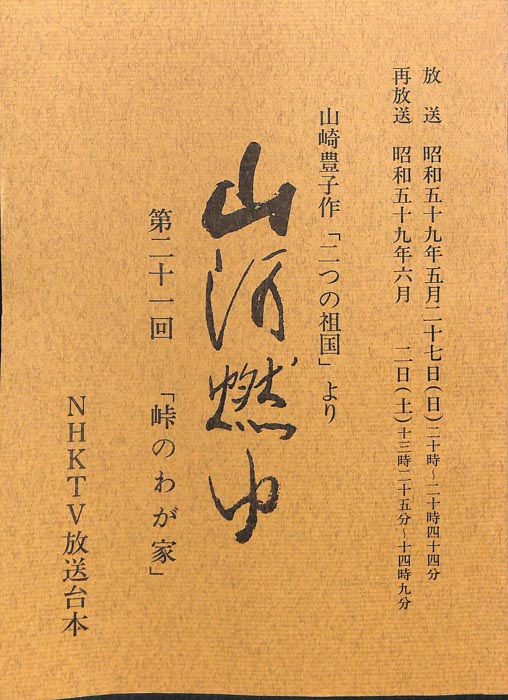 放　送　昭和五十九年五月二十七日(日)二十時～二十時四十四分
再放送　昭和五十九年六月　二日(土)十三時二十五分～十四時九分
山崎豊子作「二つの祖国」より
山河燃ゆ
第二十一回　「峠のわが家」
NHKTV放送台本